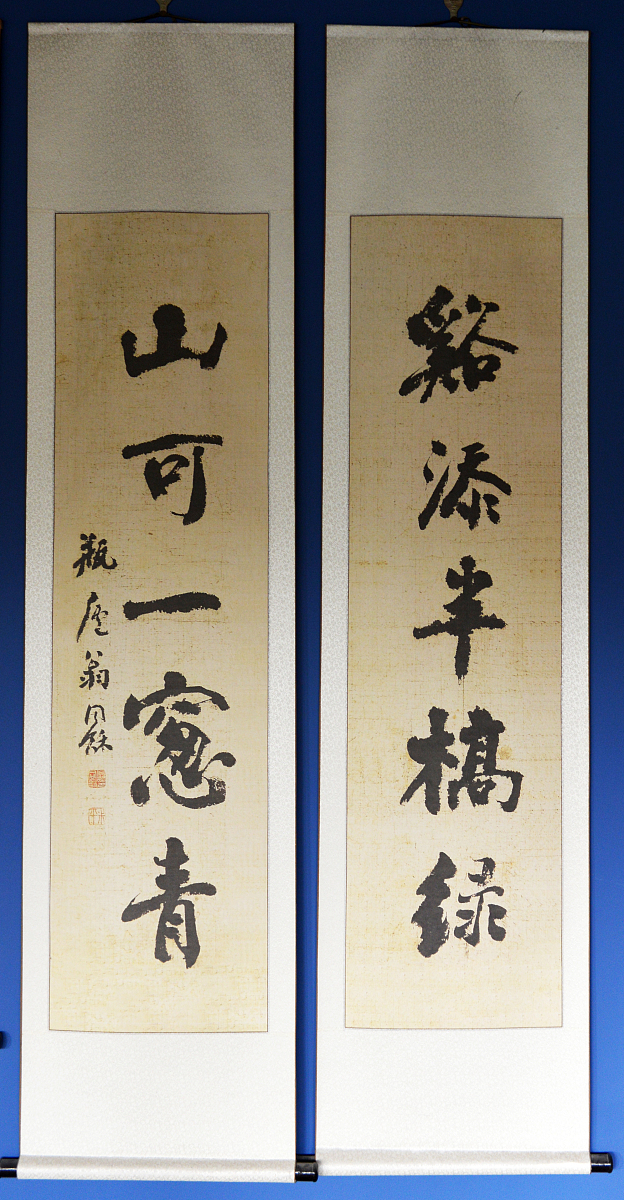 谿添半槗緑
山可一窻青
瓶廬翁同龢